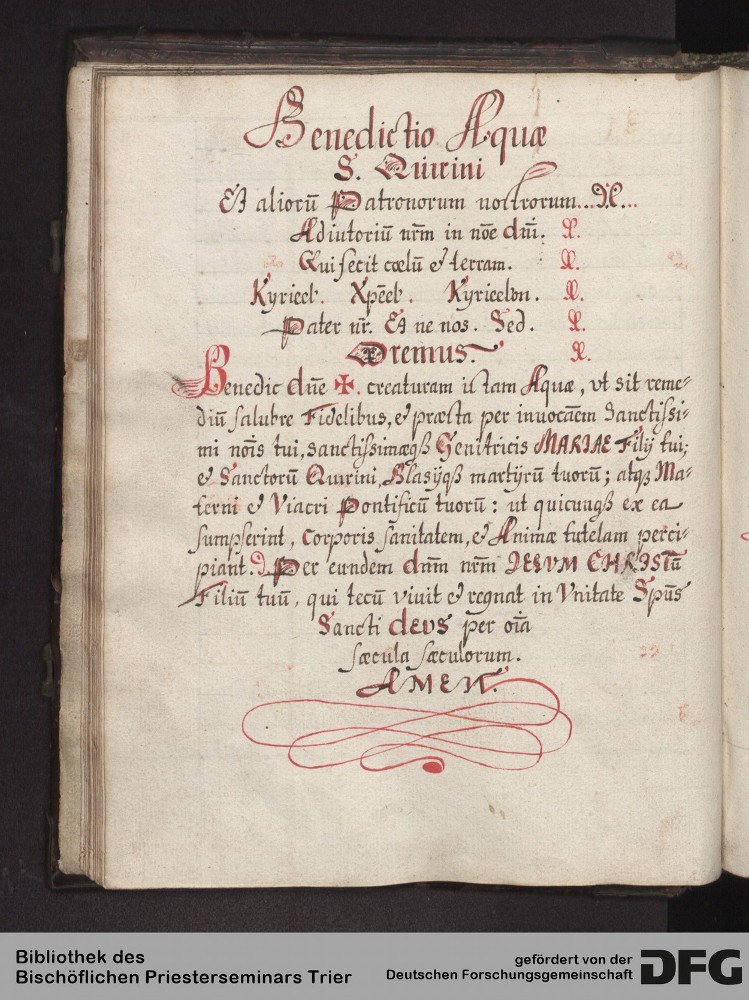 Benedictio Aquæ
S. Quirini
Et aliorū Patronorum nostrorum...
Adiutoriū nrm in nōe dnī. R.
Qui fecit cœlū et terram. R.
Kyrieel. Xpēel. Kyrieelon. R.
Pater nr. Et ne nos. Sed. R.
Oremus. R.
Benedic dñe ✠. creaturam istam Aquæ, vt sit reme-
diū salubre Fidelibus, et præsta per inuocāēm Sanctissi-
mi noīs tui, sanctissimæqȝ Genitricis MARIAE Filij tui;
et Sanctorū Quirini, Blasijqȝ martÿrū tuorū; atqȝ Ma-
terni et Viacri Pontificū tuorū: ut quicunqȝ ex ea
sumpserint, Corporis sanitatem, et Animæ tutelam perci-
piant. Per eundem dnm nrm IESVM CHRISTū
Filiū tuū, qui tecū viuit et regnat in Vnitate Spūs
Sancti deus per oīa
sæcula sæculorum.
AMEN.
Bibliothek des
Bischöflichen Priesterseminars Trier
gefördert von der
Deutschen Forschungsgemeinschaft
DFG